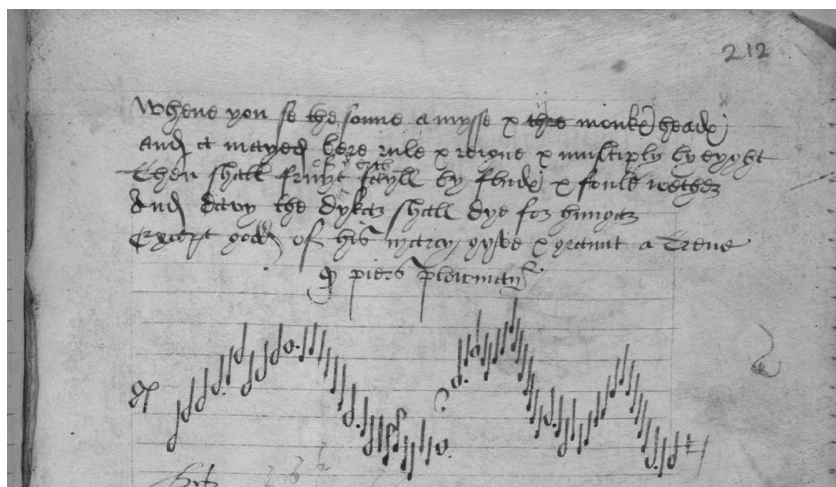 212
Whene you se the sonne a mysse & thre monkes heads
and a mayed bere rule & reigne & multiply by eyght
Then shall fruyt of ye erth fayll by fludes & foule wether
And davy the dyker shall dye for hunger
Except god of his mercy gyve & graunt a treue
piers plowman